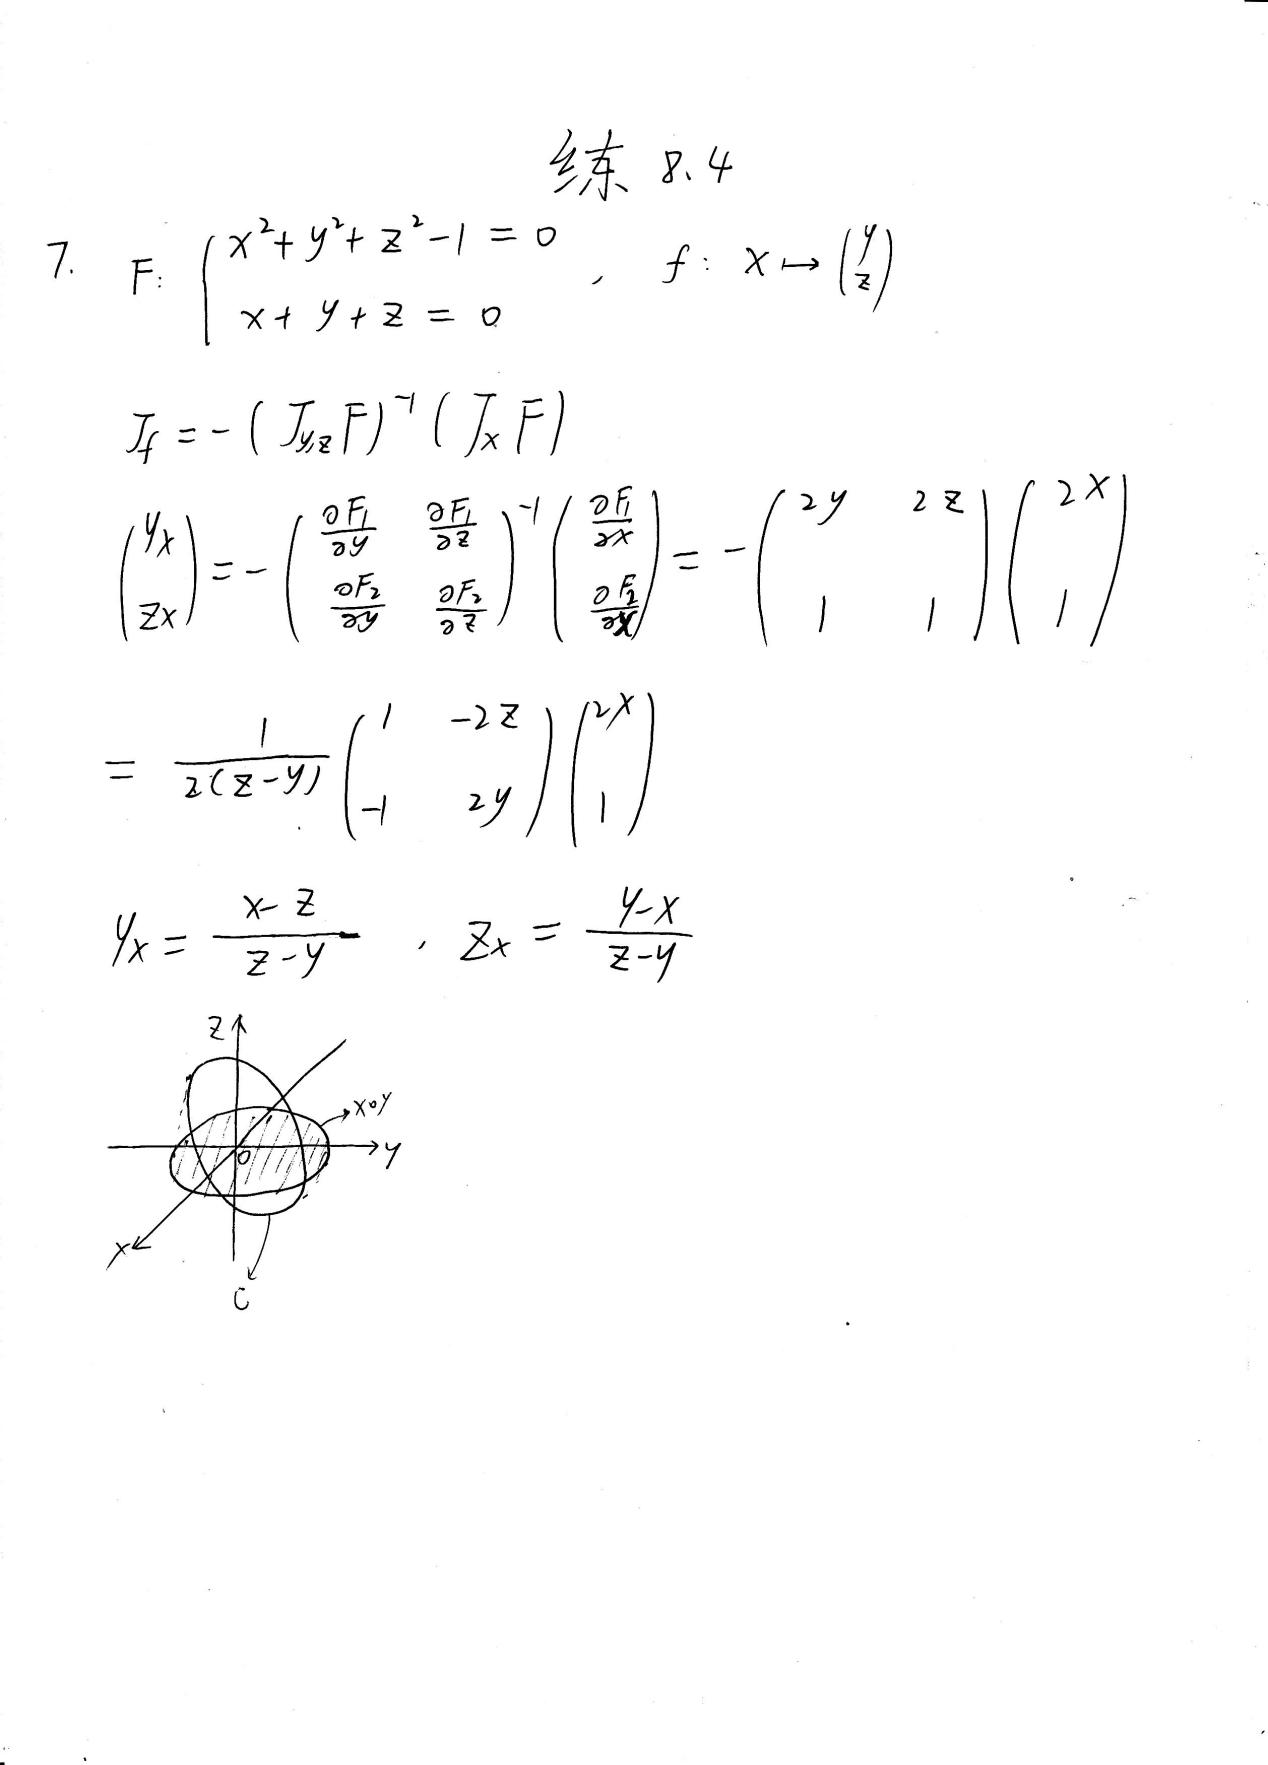 练 8.4
7. F: { x²+y²+z²-1=0 , f: x ↦ (y z)
x+y+z=0
J_f = -(J_{y,z}F)⁻¹(J_xF)
(y_x z_x) = -(∂F₁/∂y ∂F₁/∂z ∂F₂/∂y ∂F₂/∂z)⁻¹(∂F₁/∂x ∂F₂/∂x) = -(2y 2z 1 1)(2x 1)
= 1/2(z-y) (1 -2z -1 2y)(2x 1)
y_x = x-z/z-y , z_x = y-x/z-y
z
xoy
o
y
x
C